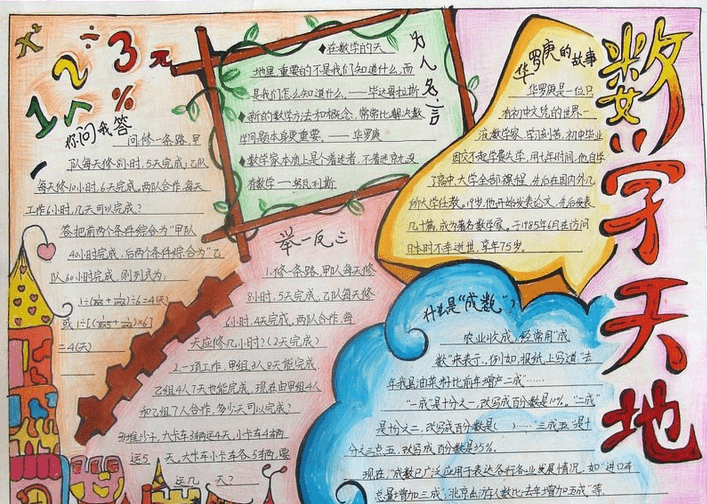 数学天地
你问我答
问修一条路,甲
队每天修8小时,5天完成;乙队
每天修10小时,6天完成,两队合作,每天
工作6小时,几天可以完成?
答把前两个条件综合为"甲队
40小时完成,后两个条件综合为"乙
队60小时完成,则列式为:
=4(天)
为人名言
在数学的天
地里重要的不是我们知道什么,而
是我们怎么知道什么。——毕达哥拉斯
新的数学方法和概念,常常比解决数
学问题本身更重要。——华罗庚
华罗庚的故事
华罗庚是一位只
有初中文凭的世界一
流数学家,学习刻苦,初中毕业
因交不起学费失学,用七年时间,他自学
了高中、大学全部课程,先后在国内外几
所大学任教,19岁,他开始发表论文,先后发表
几十篇,成为著名数学家,于1985年6月去访问
日本时不幸逝世,享年75岁。
举一反三
1、修一条路,甲队每天修
8小时,5天完成,乙队每天修
6小时,4天完成,两队合作,每
天应修几小时?(2天完成)
2、一项工作,甲组3人8天能完成,
乙组4人7天也能完成,现在由甲组4人
和乙组7人合作,多少天可以完成?
沙,大卡车3辆运4天,小卡车4辆
运5天,大卡车小卡车各5辆,要
运几天?
什么是"成数"?
农业收成,经常用"成
数"来表示。例如,报纸上写道"去
年我县油菜籽比前年增产二成"……
"一成"是十分之一,改写成百分数是10%。"二成"
是十分之二,改写成百分数是( )……"三成五"是十
分之三点五,改写成百分数是35%。
现在,"成数"已广泛应用于表达各行各业发展情况,如"进口车
总量增加三成",北京出游人数比去年增加两成"等。